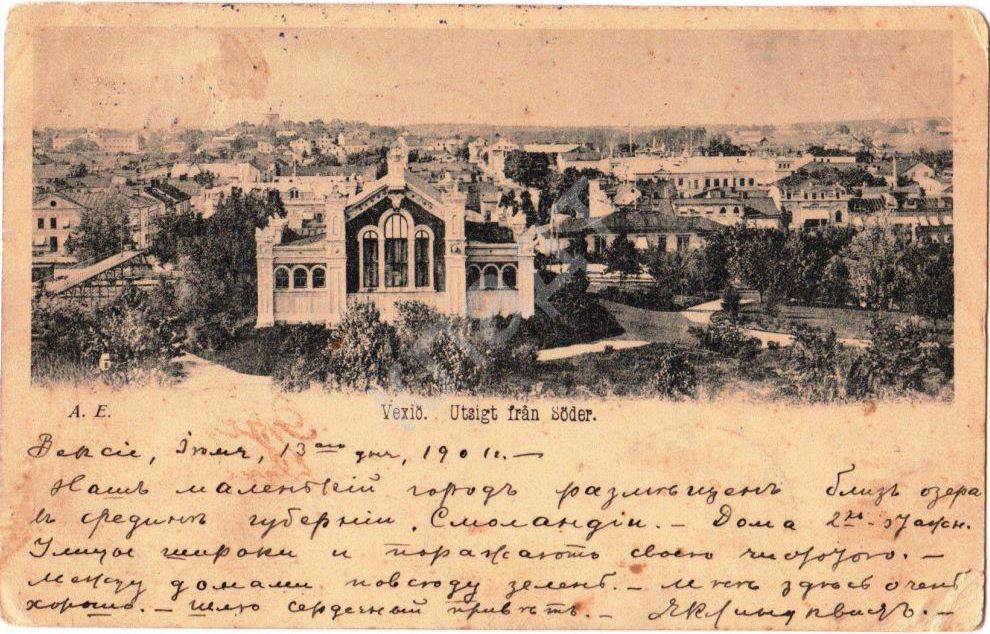 A. E.
Vexiö. Utsigt från Söder.
Вексіе, Іюля, 13го дня, 1901г.—
Нашъ маленькій городъ размѣщенъ близъ озера
въ срединѣ губерніи Смоландіи. — Дома 2хъ-этажн.
Улицы широки и поражаютъ своею чистотою. —
Между домами повсюду зелень. — Мнѣ здѣсь очень
хорошо. — Шлю сердечный привѣтъ. —